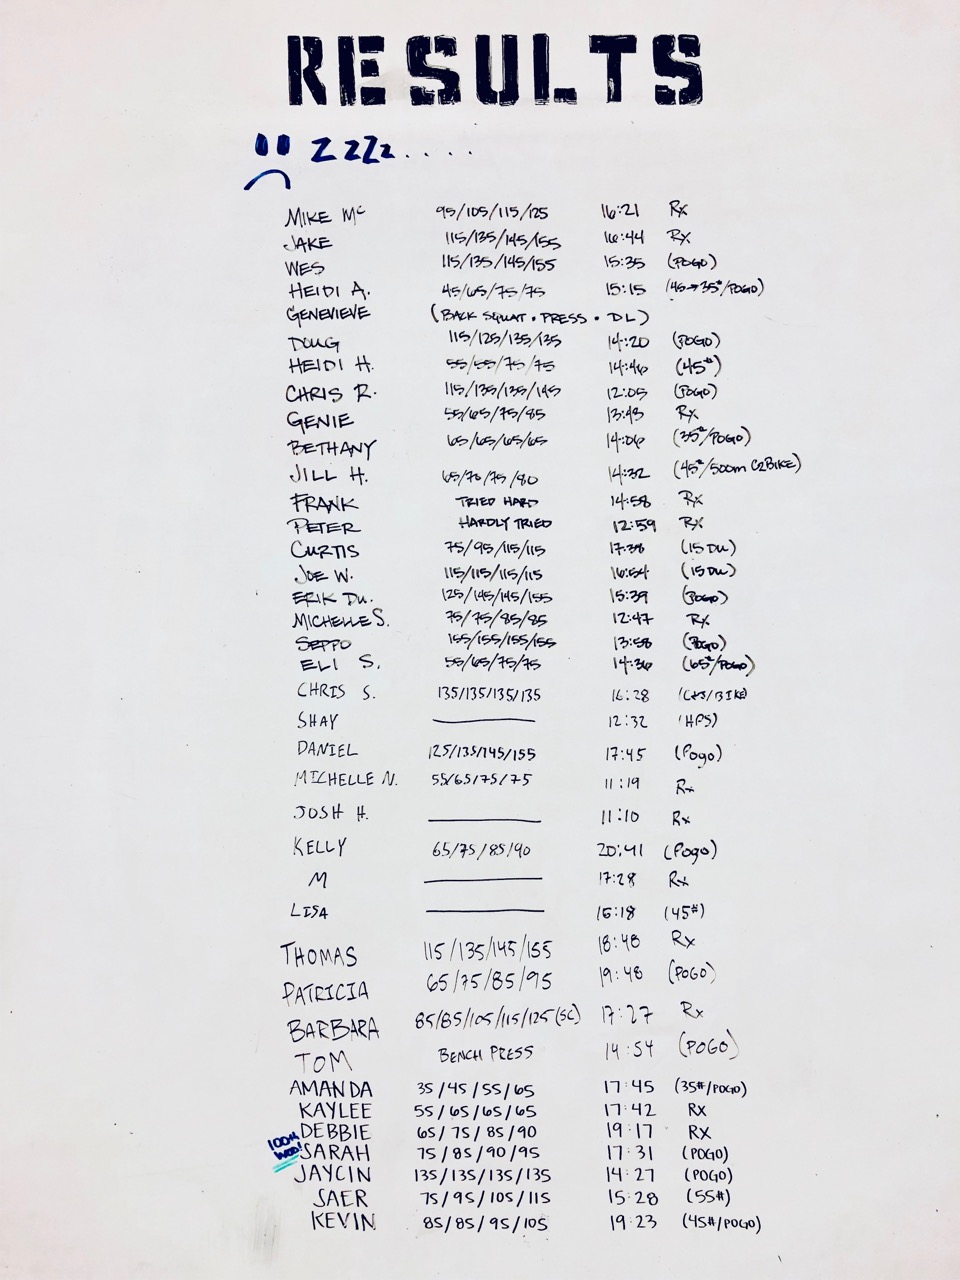 RESULTS
ZZZZ....
MIKE Mc 95/105/115/125 16:21 Rx
JAKE 115/135/145/155 16:44 Rx
WES 115/135/145/155 15:35 (POGO)
HEIDI A. 45/65/75/75 15:15 (45→35#/POGO)
GENEVIEVE (BACK SQUAT • PRESS • DL)
DOUG 115/125/135/135 14:20 (POGO)
HEIDI H. 55/55/75/75 14:46 (45#)
CHRIS R. 115/135/135/145 12:05 (POGO)
GENIE 55/65/75/85 13:43 Rx
BETHANY 65/65/65/65 14:06 (35#/POGO)
JILL H. 65/70/75/80 14:32 (45#/500m C2BIKE)
FRANK TRIED HARD 14:58 Rx
PETER HARDLY TRIED 12:59 Rx
CURTIS 75/95/115/115 17:38 (15 DU)
JOE W. 115/115/115/115 16:54 (15 DU)
ERIK DU. 125/145/145/155 15:39 (POGO)
MICHELLE S. 75/75/85/85 12:47 Rx
SEPPO 155/155/155/155 13:58 (POGO)
ELI S. 55/65/75/75 14:36 (65#/POGO)
CHRIS S. 135/135/135/135 16:28
SHAY 12:32 (HPS)
DANIEL 125/135/145/155 17:45 (Pogo)
MICHELLE N. 55/65/75/75 11:19 Rx
JOSH H. 11:10 Rx
KELLY 65/75/85/90 20:41 (Pogo)
M 17:28 Rx
LISA 15:18 (45#)
THOMAS 115/135/145/155 18:48 Rx
PATRICIA 65/75/85/95 19:48 (POGO)
BARBARA 85/85/105/115/125 (SC) 17:27 Rx
TOM BENCH PRESS 14:54 (POGO)
AMANDA 35/45/55/65 17:45 (35#/POGO)
KAYLEE 55/65/65/65 17:42 Rx
DEBBIE 65/75/85/90 19:17 Rx
100th WOD! SARAH 75/85/90/95 17:31 (POGO)
JAYCIN 135/135/135/135 14:27 (POGO)
SAER 75/95/105/115 15:28 (55#)
KEVIN 85/85/95/105 19:23 (45#/POGO)